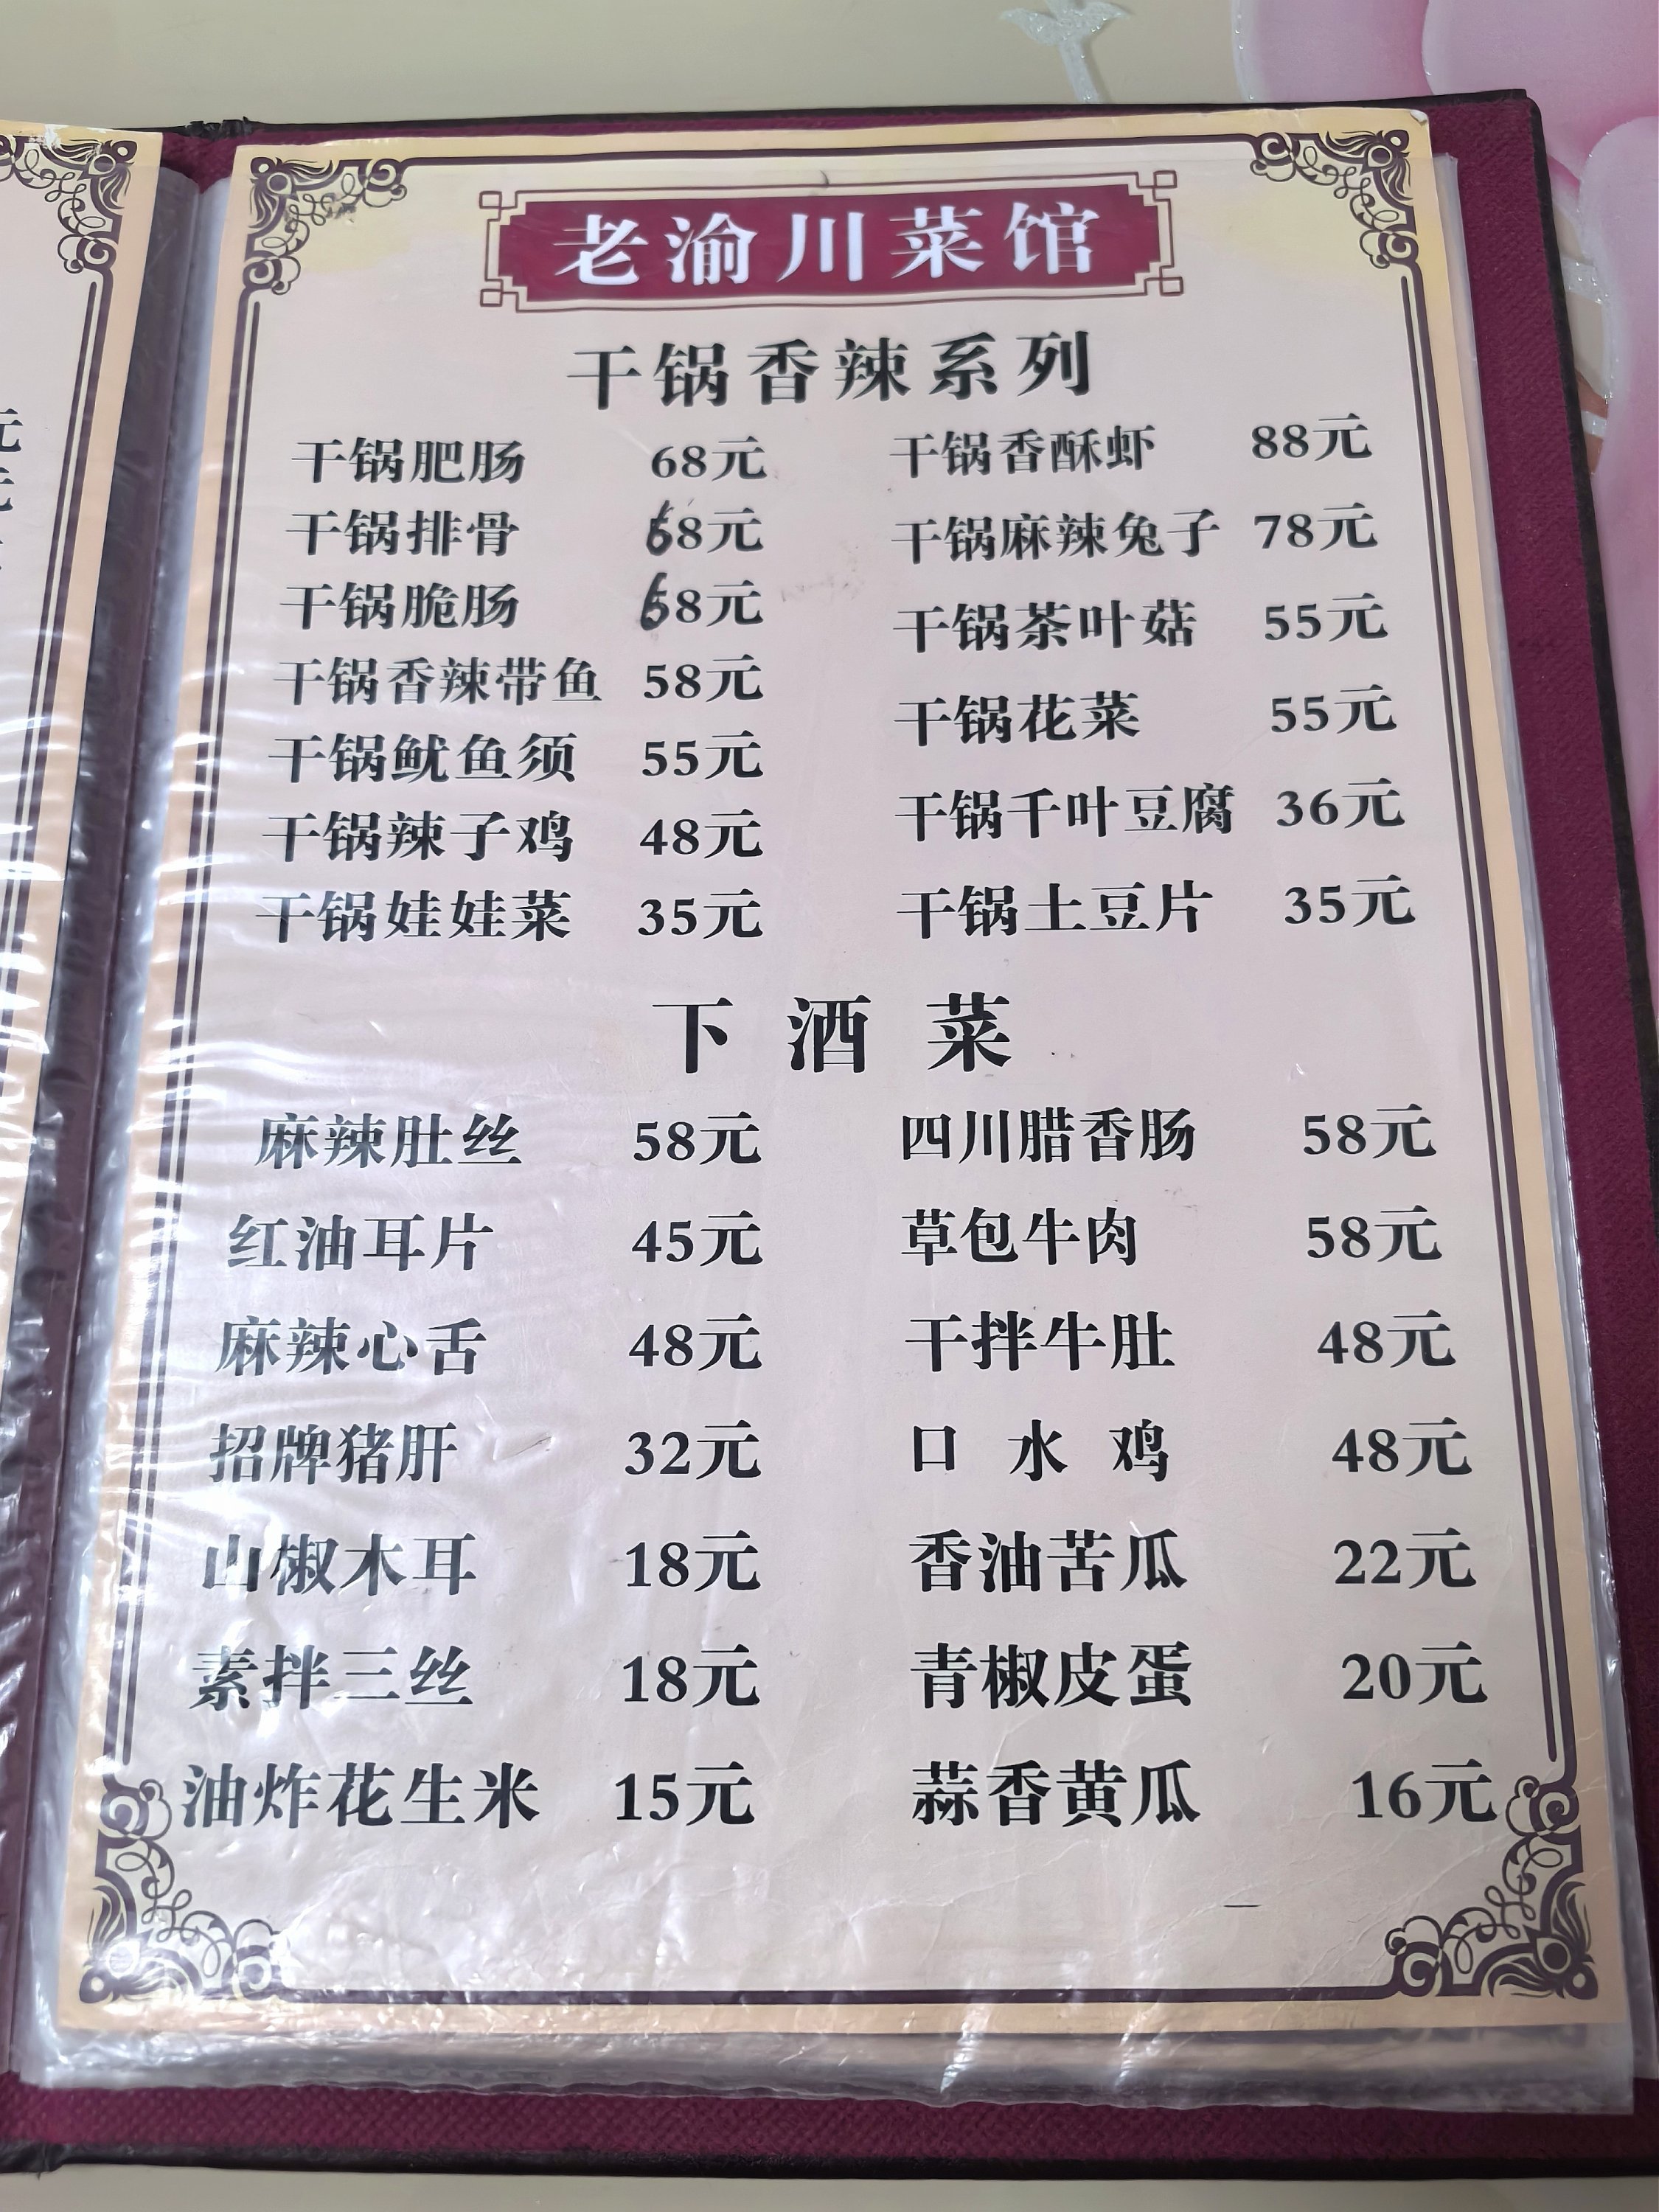 老渝川菜馆
干锅香辣系列
干锅肥肠 68元 干锅香酥虾 88元
干锅排骨 68元 干锅麻辣兔子 78元
干锅脆肠 68元 干锅茶叶菇 55元
干锅香辣带鱼 58元 干锅花菜 55元
干锅鱿鱼须 55元 干锅千叶豆腐 36元
干锅辣子鸡 48元 干锅土豆片 35元
干锅娃娃菜 35元
下酒菜
麻辣肚丝 58元 四川腊香肠 58元
红油耳片 45元 草包牛肉 58元
麻辣心舌 48元 干拌牛肚 48元
招牌猪肝 32元 口水鸡 48元
山椒木耳 18元 香油苦瓜 22元
素拌三丝 18元 青椒皮蛋 20元
油炸花生米 15元 蒜香黄瓜 16元